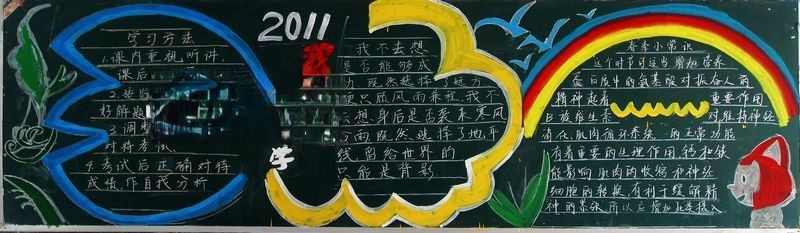 学习方法
1.课内重视听讲,
课后
2.适当
好解题
3.调整
对待考试.
4.考试后正确对待
成绩,作自我分析
2011
学
我不去想
是否能够成
功,既然选择了远方
便只顾风雨兼程,我不
去想身后是否袭来寒风
冷雨既然选择了地平
线,留给世界的
只能是背影
春季小常识
这个时节可适当增加营养
蛋白质中的氨基酸对振奋人的
精神起着 重要作用
B族维生素 对维持神经
消化、肌肉循环系统 的正常功能
有着重要的生理作用 钙和镁
能影响肌肉的收缩和神经
细胞的转换,有利于缓解精
神的紧张,所以应增加此类摄入